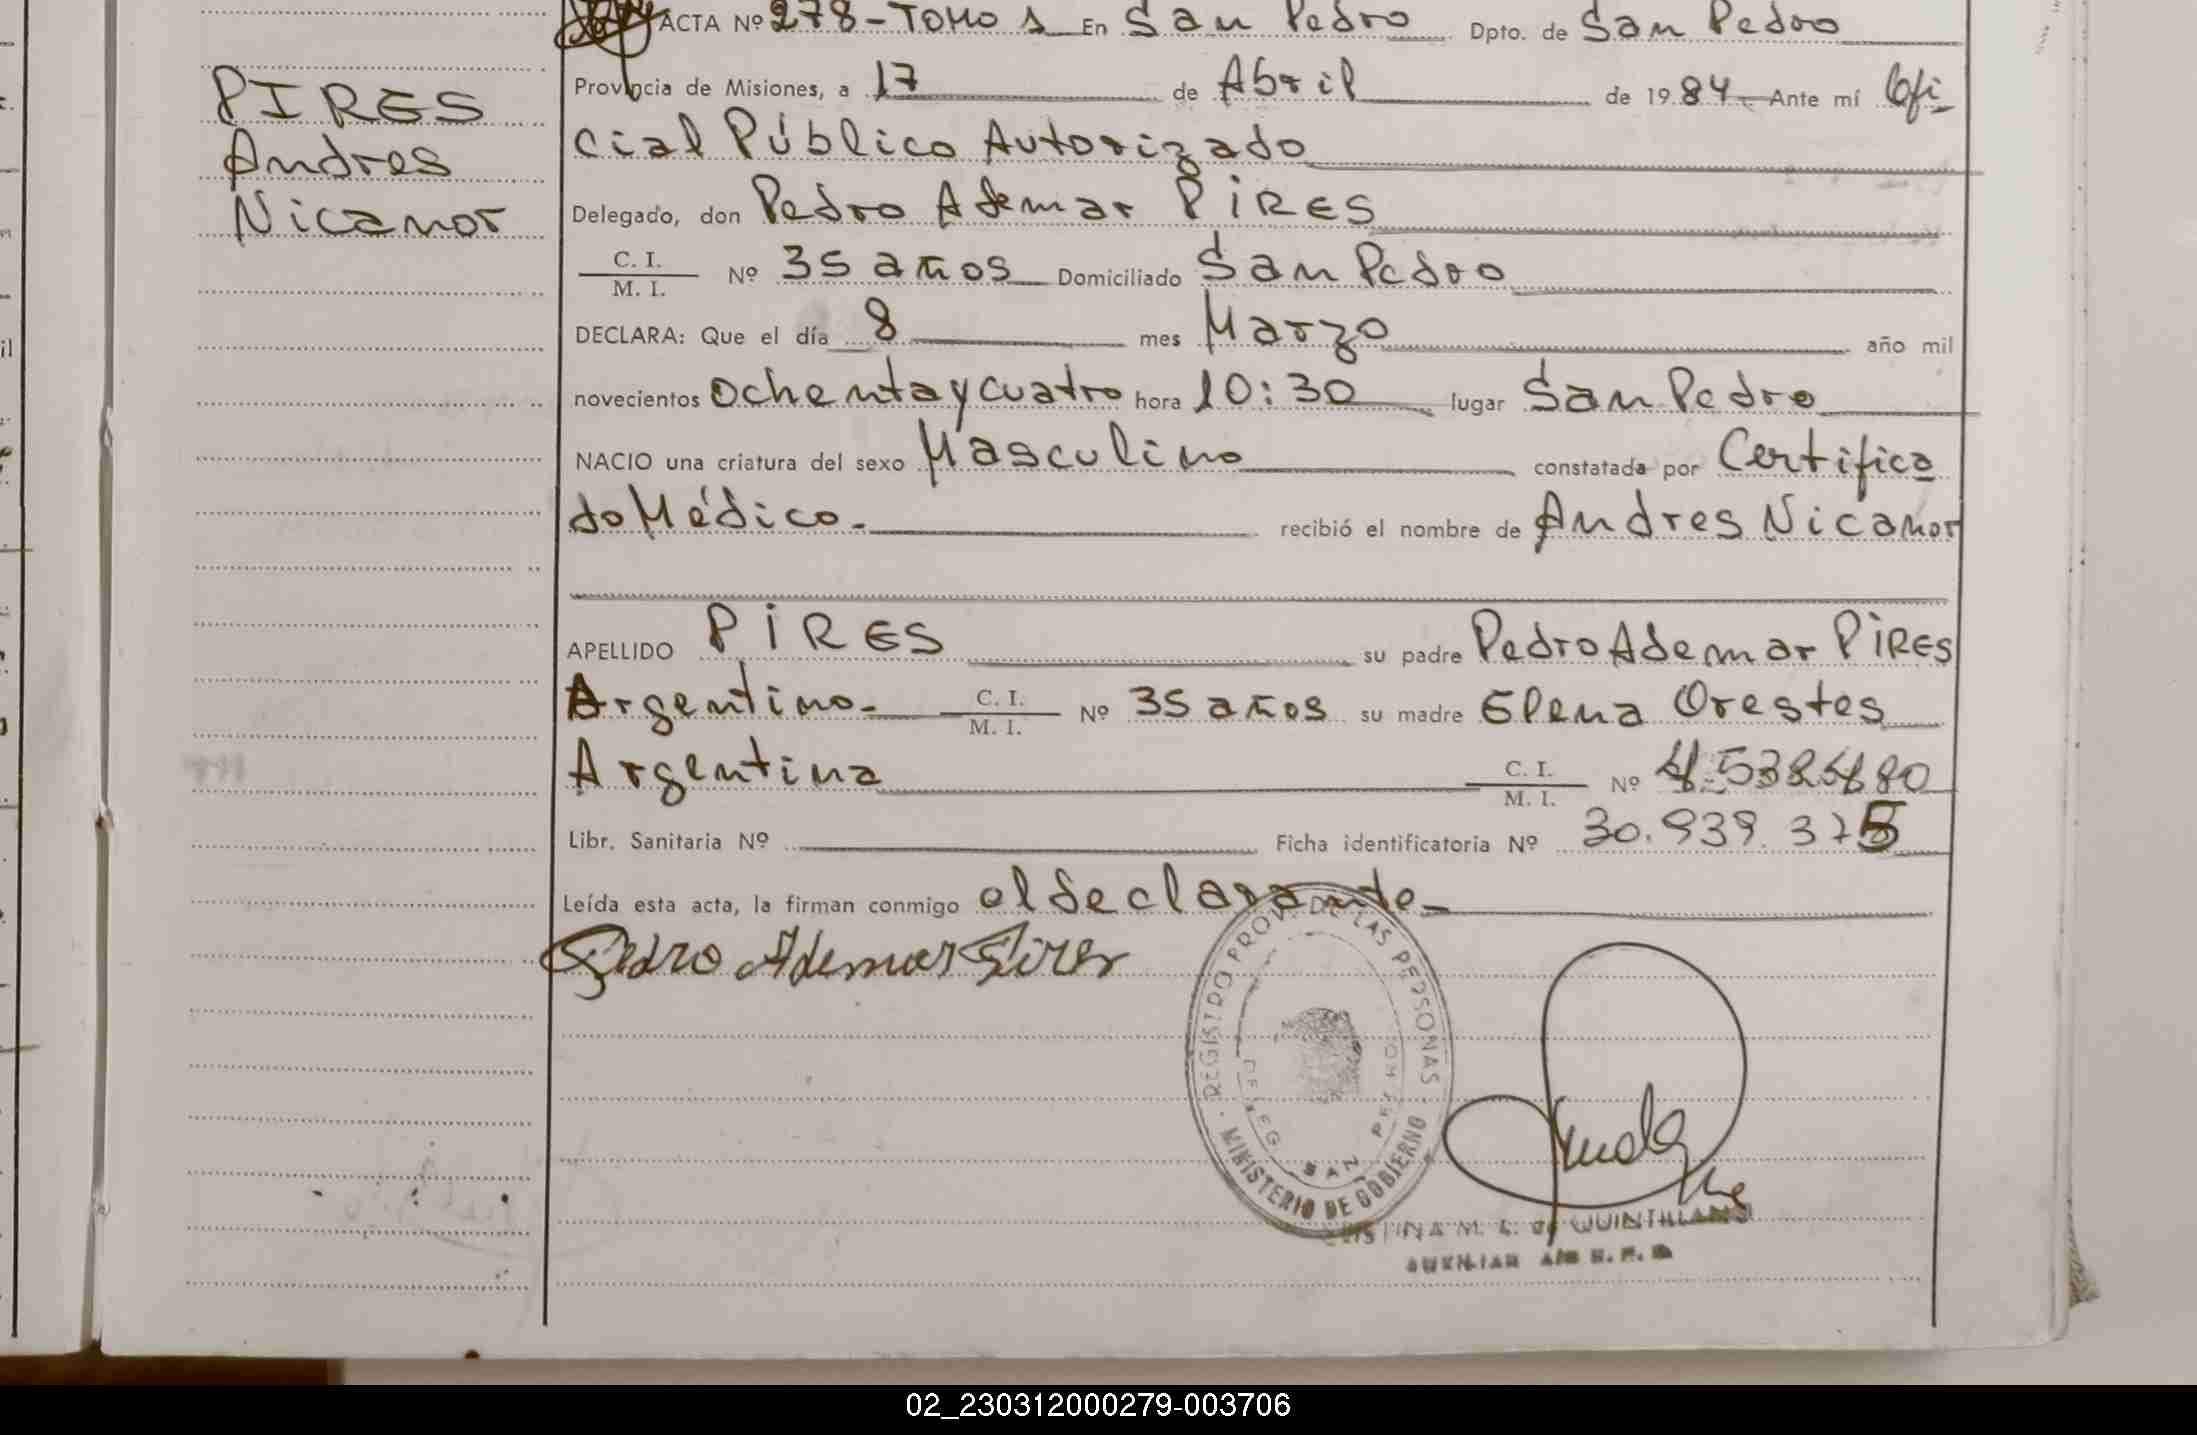 ACTA Nº 278-TOMO 1 En San Pedro Dpto. de San Pedro
PIRES
Andres
Nicanor
Provincia de Misiones, a 17 de Abril de 1984 Ante mí Ofi
cial Público Autorizado
Delegado, don Pedro Ademar PIRES
C. I.
M. I. Nº 35 años Domiciliado San Pedro
DECLARA: Que el día 8 mes Marzo año mil
novecientos ochenta y cuatro hora 10:30 lugar San Pedro
NACIO una criatura del sexo Masculino constatada por Certifica
do Médico. recibió el nombre de Andres Nicanor
APELLIDO PIRES su padre Pedro Ademar PIRES
Argentino- C. I.
M. I. Nº 35 años su madre Elena Orestes
Argentina C. I.
M. I. Nº
Libr. Sanitaria Nº Ficha identificatoria Nº 30.939.375
Leída esta acta, la firman conmigo el declarante-
Pedro Ademar Pires
REGISTRO PROV. DE LAS PERSONAS
DELEG. SAN PEDRO
MINISTERIO DE GOBIERNO
CRISTINA M. L. de QUINTILLANO
AUXILIAR
02_230312000279-003706